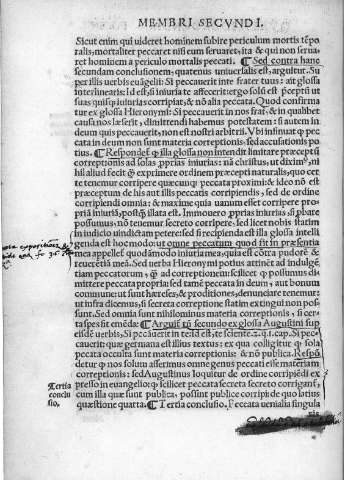 MEMBRI SECVNDI.
Sicut enim qui uideret hominem subire periculum mortis tẽpo
ralis, mortaliter peccaret nisi eum seruaret, ita & qui non serua
ret hominem a periculo mortalis peccati. ¶ Sed contra hanc
secundam conclusionem, quatenus uniuersalis est, arguitur. Su
per illis uerbis euãgelii: Si peccauerit in te frater tuus: ait glossa
interlinearis: Id est, si iniuria te affecerit: ergo solũ est p̃ceptũ ut
suas quisq; iniurias corripiat, & nõ alia peccata. Quod confirma
tur ex glossa Hieronymi: Si peccauerit in nos frater, & in qualibet
causa nos læserit, dimittendi habemus potestatem: si autem in
deum quis peccauerit, non est nostri arbitrii. Vbi infinuat ꝙ pec
cata in deum non sunt materia correptionis: sed accusationis po
tius. ¶ Respondet ꝙ illa glossa non intendit limitare præceptũ
correptionis ad solas p̃prias iniurias: nã christus, ut diximus, ni
hil aliud fecit ꝗ̃ exprimere ordinem præcepti naturalis, quo cer
te tenemur corripere quæcunq; peccata proximi: & ideo nõ est
præceptum de his aut illis peccatis corripiendis, sed de ordine
corripiendi omnia: & maxime quia uanum esset corripere pro
priã iniuriã, postꝗ̃ illata est. Immo uero p̃prias iniurias, si p̃bare
possumus, nõ tenemur secreto corripere: sed licet nobis statim
in iudicio uindictam petere: sed reprehendis illa glossa intelli
genda est hoc modo: ut omne peccatum quod fit in præsentia
mea appellet quodãmodo iniuria mea: quia est cõtra pudorẽ &
reuerẽtiã meã. Sed uerba Hieronymi potius attinẽt ad indulgẽ
tiam peccatorum, ꝗ̃ ad correptionem: scilicet ꝙ possumus di
mittere peccata propria: sed tamẽ peccata in deum, aut bonum
commune: ut sunt hæreses, & proditiones, denunciare tenemur:
ut infra dicemus, si secreta correptione statim extingui non pos
sunt. Sed omnia sunt nihilominus materia correptionis, si cer
ta spes sit emẽdæ. ¶ Arguit̃ secundo: ex glossa Augustini sup
eisdẽ uerbis, Si peccauerit in te: id est, te sciente: 2. q. 1. cap. Si pec
cauerit: quæ germana est illius textus: ex qua colligitur ꝙ sola
peccata occulta sunt materia correptionis: & nõ publica. Respõ
detur ꝙ nos solum asserimus omne genus peccati esse materiam
correptionis: sed Augustinus loquitur de ordine corripiẽdi ex
presso in euangelio: ꝙ scilicet peccata secreta secreto corrigant̃,
cum illa quæ sunt publica, possint publice corripi: de quo latius
quæstione quarta. ¶ Tertia conclusio. Peccata uenialia singula
Tertia
conclu
sio.
ris